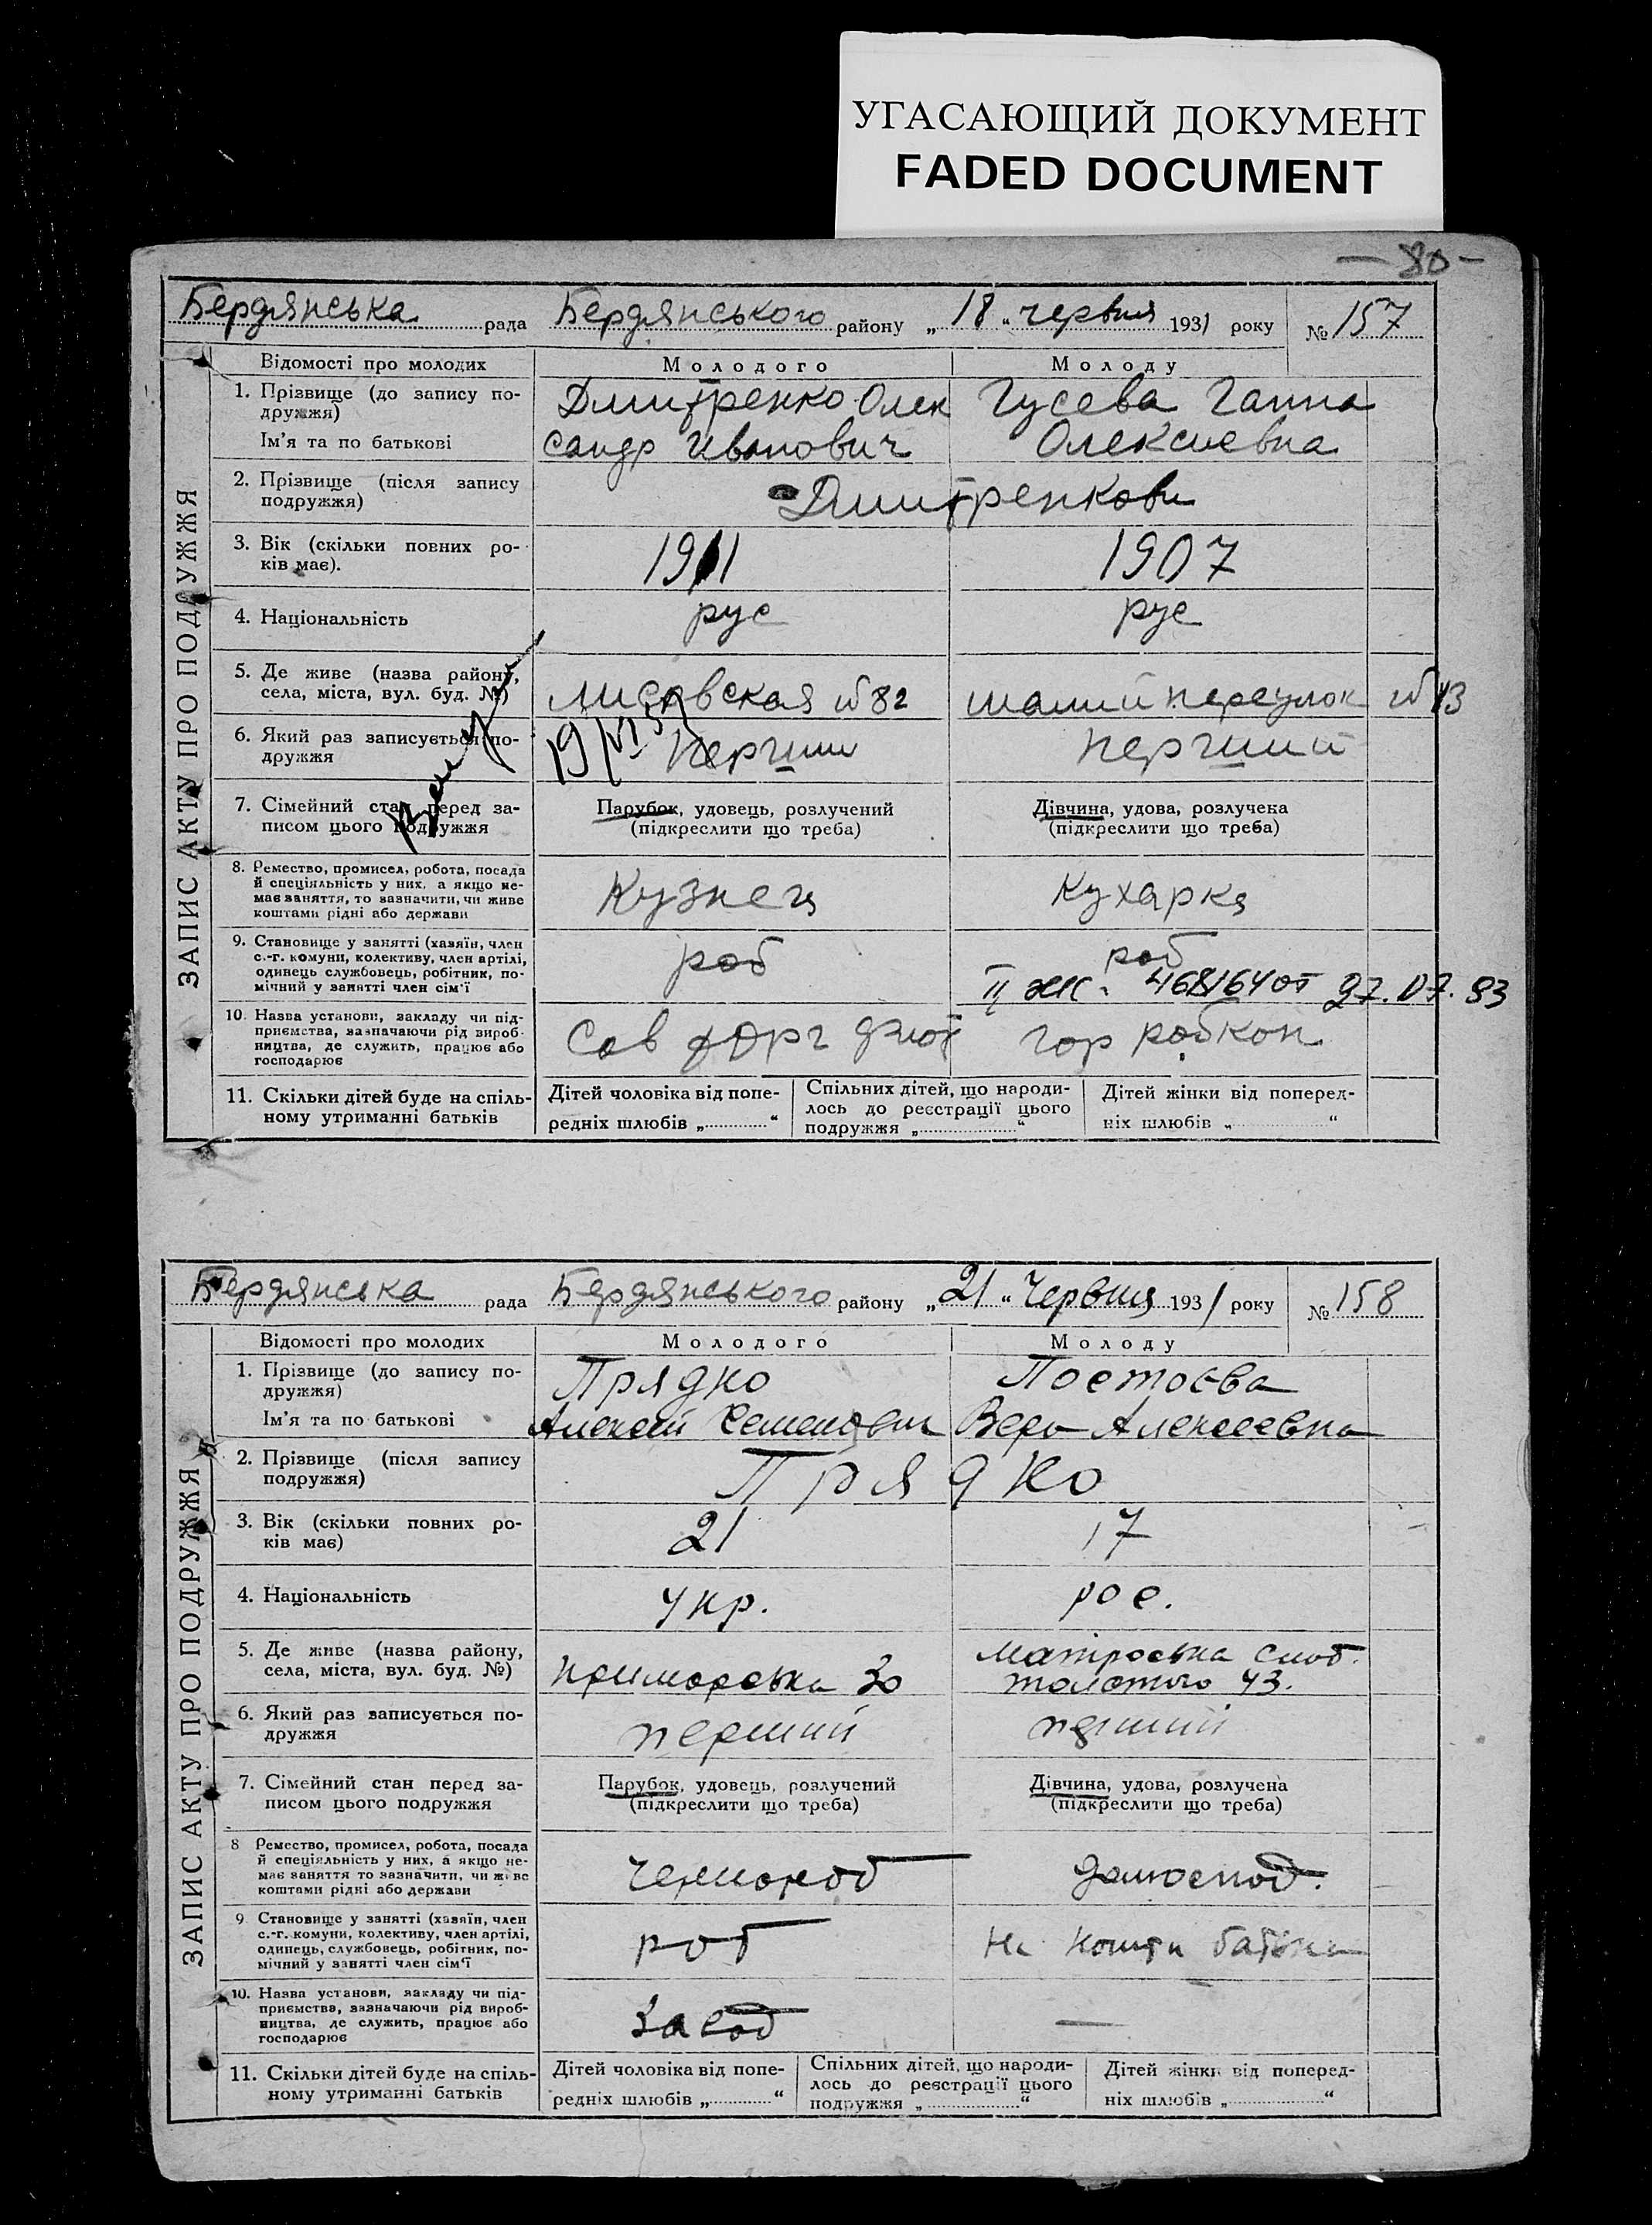 УГАСАЮЩИЙ ДОКУМЕНТ
FADED DOCUMENT
— 80 —
Бердянська рада Бердянського району „18“ червня 1931 року № 157
ЗАПИС АКТУ ПРО ПОДРУЖЖЯ
Відомості про молодих Молодого Молоду
1. Прізвище (до запису по-
дружжя)
Ім'я та по батькові
Дмитренко Олек
сандр Иванович
Гусева Ганна
Олексиевна
2. Прізвище (після запису
подружжя)
Дмитренкови
3. Вік (скільки повних ро-
ків має).
1911 1907
4. Національність
рус рус
5. Де живе (назва району,
села, міста, вул. буд. №)
Лисовская № 82 малий переулок № 43
6. Який раз записується по-
дружжя
19/VI 51
Перший перший
7. Сімейний стан перед за-
писом цього подружжя
Парубок, удовець, розлучений
(підкреслити що треба)
Дівчина, удова, розлучека
(підкреслити що треба)
8. Ремество, промисел, робота, посада
й спеціяльність у них, а якщо не-
має заняття, то зазначити, чи живе
коштами рідні або держави
Кузнец Кухарка
9. Становище у занятті (хазяїн, член
с.-г. комуни, колективу, член артілі,
одинець службовець, робітник, по-
мічний у занятті член сім'ї
роб роб
II ЖС. 468164 от 27.07.83
10. Назва установи, закладу чи під-
приємства, зазначаючи рід вироб-
ництва, де служить, працює або
господарює
Сов Гор робкоп
11. Скільки дітей буде на спіль-
ному утриманні батьків
Дітей чоловіка від попе-
редніх шлюбів „ “
Спільних дітей, що народи-
лось до реєстрації цього
подружжя „ “
Дітей жінки від поперед-
ніх шлюбів „ “
Бердянська рада Бердянського району „21“ Червня 1931 року № 158
ЗАПИС АКТУ ПРО ПОДРУЖЖЯ
Відомості про молодих Молодого Молоду
1. Прізвище (до запису по-
дружжя)
Ім'я та по батькові
Прядко
Алексей Семенович
Постоєва
Вера Алексеевна
2. Прізвище (після запису
подружжя)
Прядко
3. Вік (скільки повних ро-
ків має)
21 17
4. Національність
укр. рос.
5. Де живе (назва району,
села, міста, вул. буд. №)
приморська 30
Матроська слоб.
толстого 43.
6. Який раз записується по-
дружжя
перший перший
7. Сімейний стан перед за-
писом цього подружжя
Парубок, удовець, розлучений
(підкреслити що треба)
Дівчина, удова, розлучена
(підкреслити що треба)
8 Ремество, промисел, робота, посада
й спеціяльність у них, а якщо не-
має заняття то зазначити, чи живе
коштами рідні або держави
Чорнороб домоспод.
9 Становище у занятті (хазяїн, член
с.-г. комуни, колективу, член артілі,
одинець, службовець, робітник, по-
мічний у занятті член сім'ї
роб На кошти батька
10. Назва установи, закладу чи під-
приємства, зазначаючи рід вироб-
ництва, де служить, працює або
господарює
Завод —
11. Скільки дітей буде на спіль-
ному утриманні батьків
Дітей чоловіка від попе-
редніх шлюбів „ “
Спільних дітей, що народи-
лось до реєстрації цього
подружжя „ “
Дітей жінки від поперед-
ніх шлюбів „ “